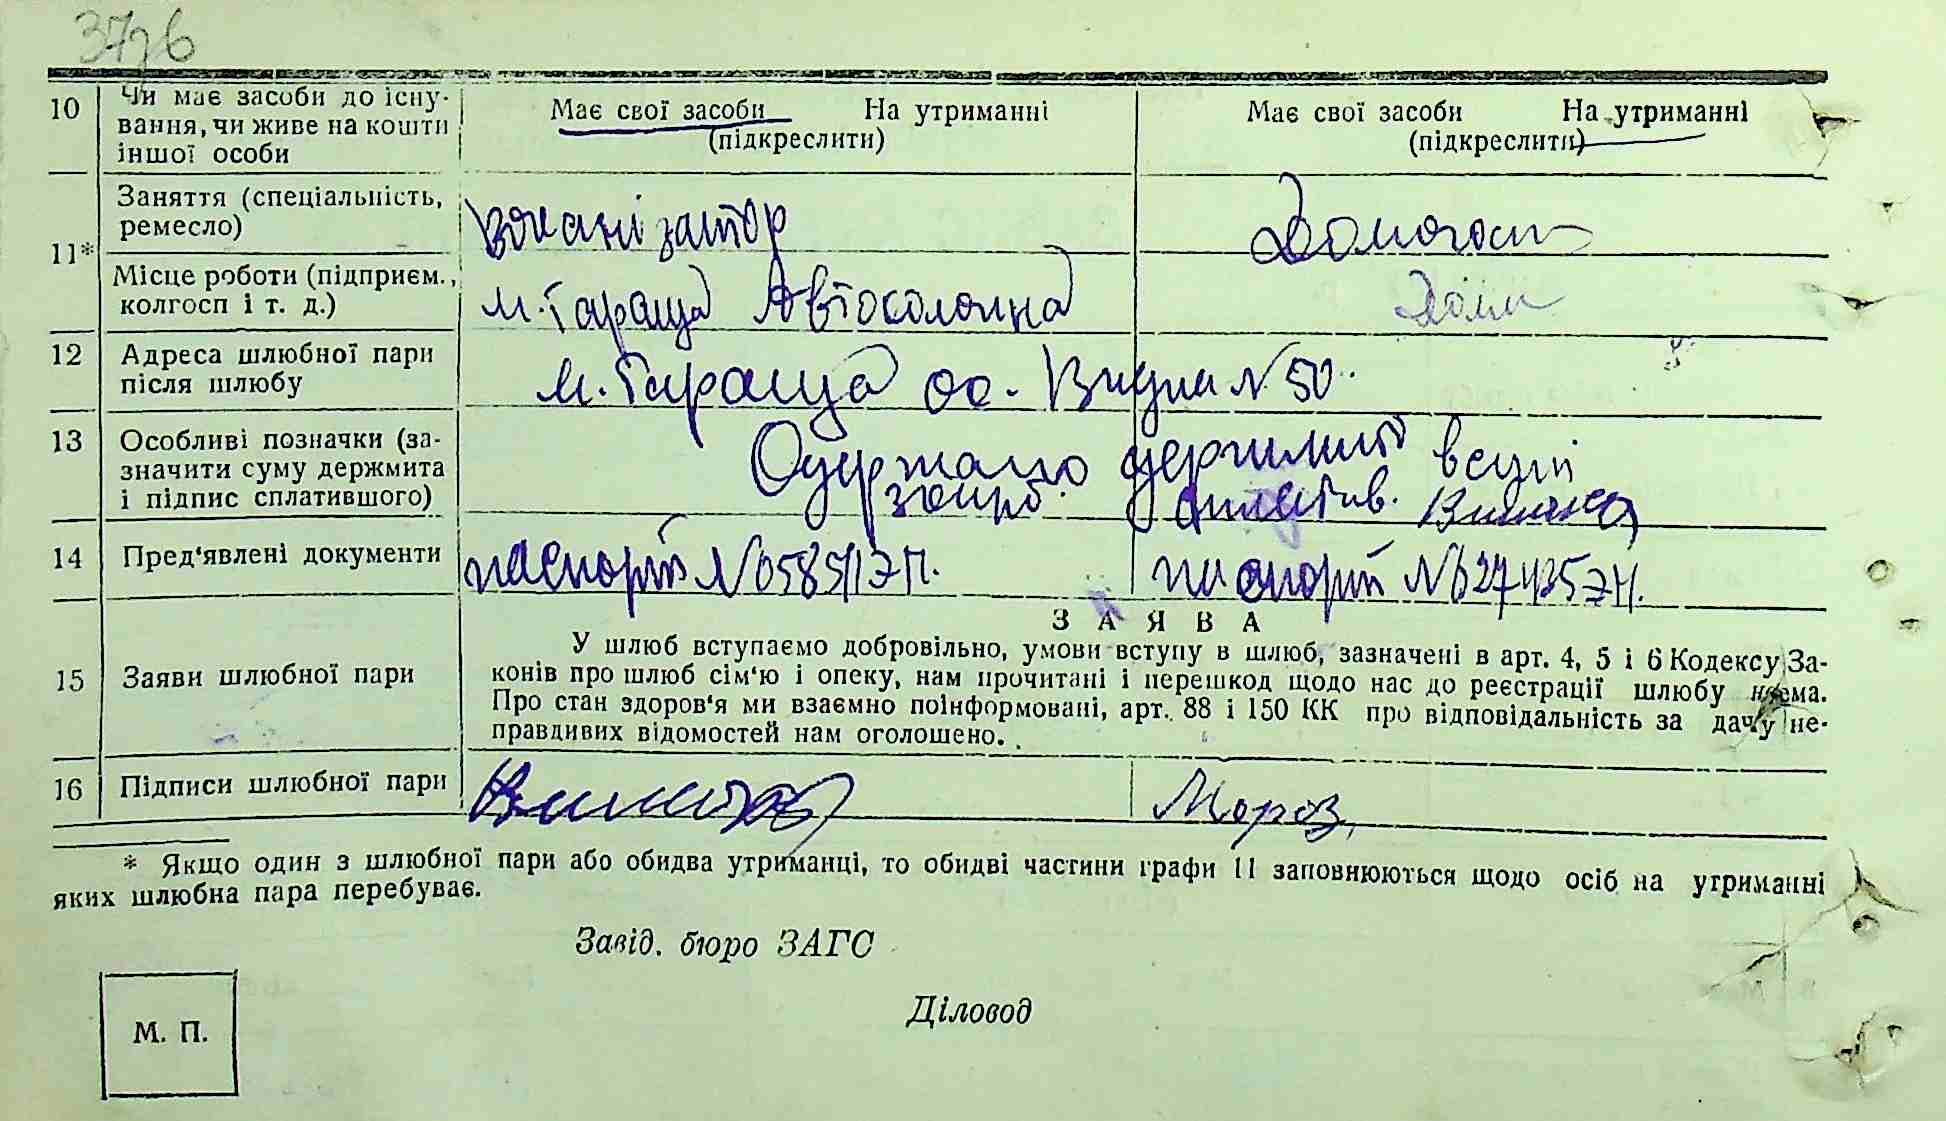 3726
10 Чи має засоби до існу-
вання, чи живе на кошти
іншої особи
Має свої засоби На утриманні
(підкреслити)
Має свої засоби На утриманні
(підкреслити)
11*
Заняття (спеціальність,
ремесло)
Домогосп
Місце роботи (підприєм.,
колгосп і т. д.)
м. Тараща Автоколонна
Дома
12 Адреса шлюбної пари
після шлюбу
м. Тараща № 50.
13 Особливі позначки (за-
значити суму держмита
і підпис сплатившого)
Одержано держмита
14 Пред'явлені документи
паспорт №
паспорт №
З А Я В А
15 Заяви шлюбної пари
У шлюб вступаємо добровільно, умови вступу в шлюб, зазначені в арт. 4, 5 і 6 Кодексу За-
конів про шлюб сім'ю і опеку, нам прочитані і перешкод щодо нас до реєстрації шлюбу нема.
Про стан здоров'я ми взаємно поінформовані, арт. 88 і 150 КК про відповідальність за дачу не-
правдивих відомостей нам оголошено.
16 Підписи шлюбної пари
Мороз
* Якщо один з шлюбної пари або обидва утриманці, то обидві частини графи 11 заповнюються щодо осіб на утриманні
яких шлюбна пара перебуває.
Завід. бюро ЗАГС
Діловод
М. П.